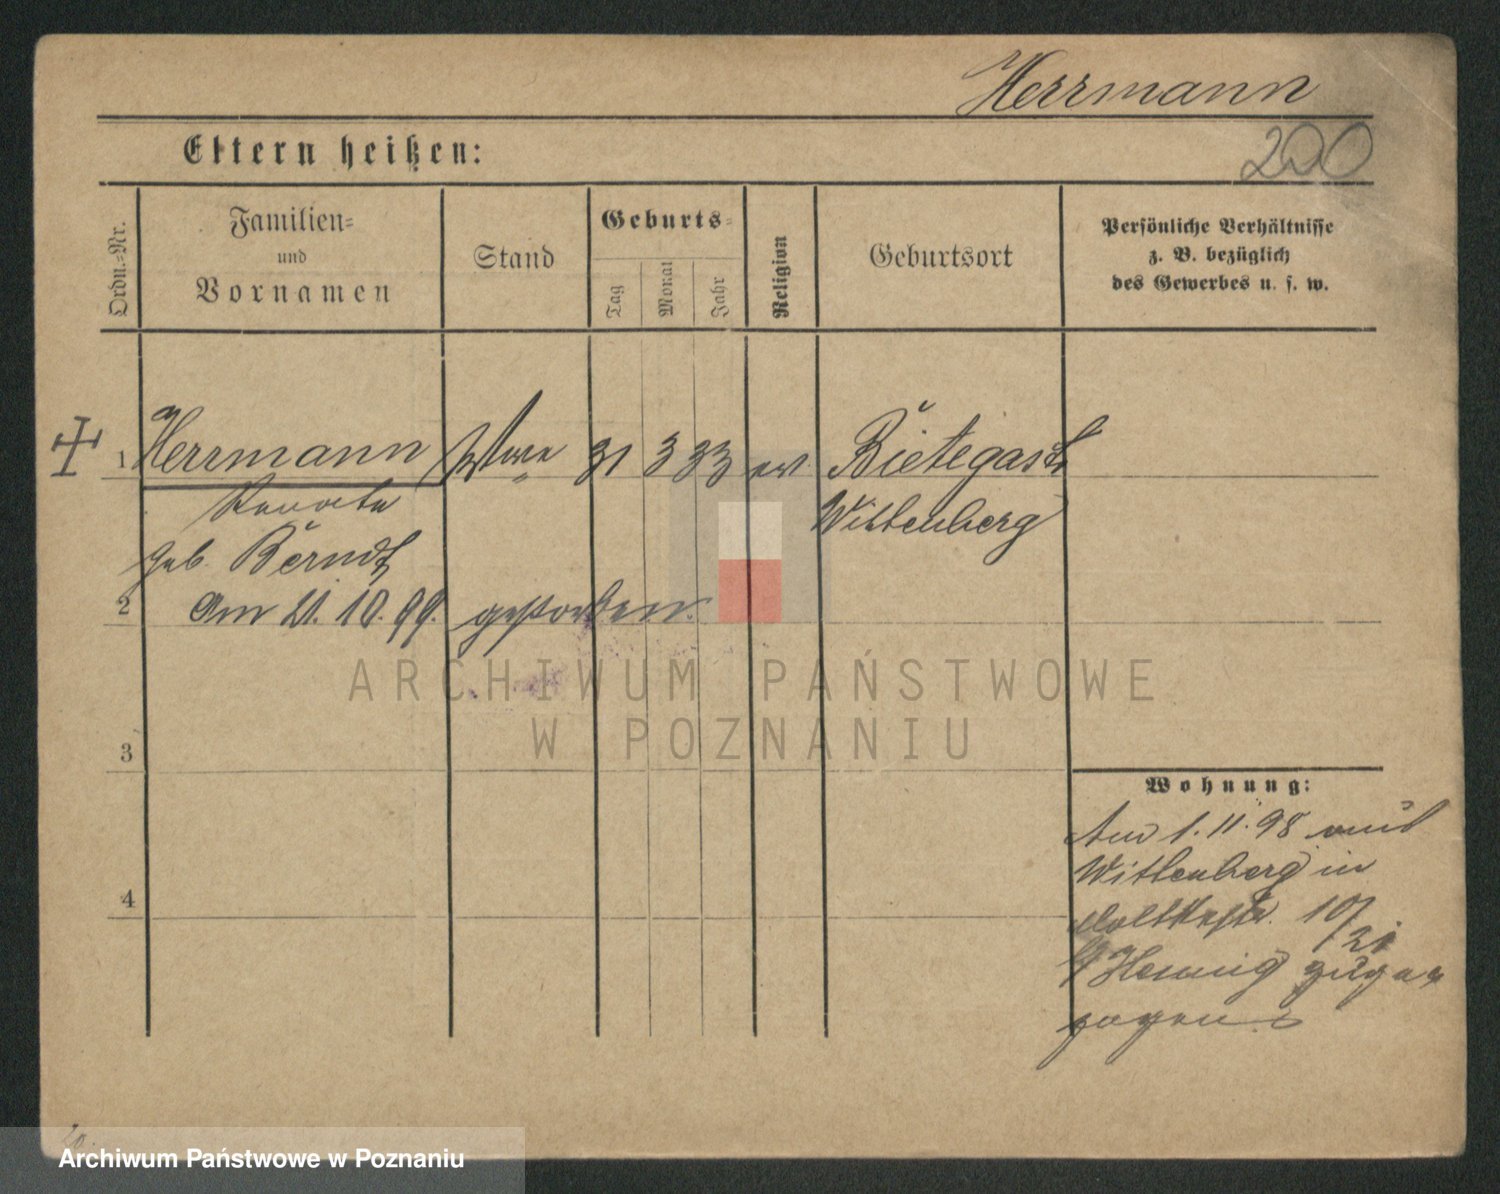 Herrmann
200
Eltern heißen:
Ordn.-Nr.
Familien-
und
Vornamen
Stand
Geburts-
Tag
Monat
Jahr
Religion
Geburtsort
Persönliche Verhältnisse
z. B. bezüglich
des Gewerbes u. s. w.
1 Herrmann Wwe 31 3 33 ev. Bietegast
Renate Wittenberg
geb. Berndt
2 Am 21. 10. 99. gestorben.
3
4
Wohnung:
Am 1. 11. 98 aus
Wittenberg in
Moltkestr. 10/
21
b/ Hennig zuge=
zogen
ARCHIWUM PAŃSTWOWE
W POZNANIU
Archiwum Państwowe w Poznaniu